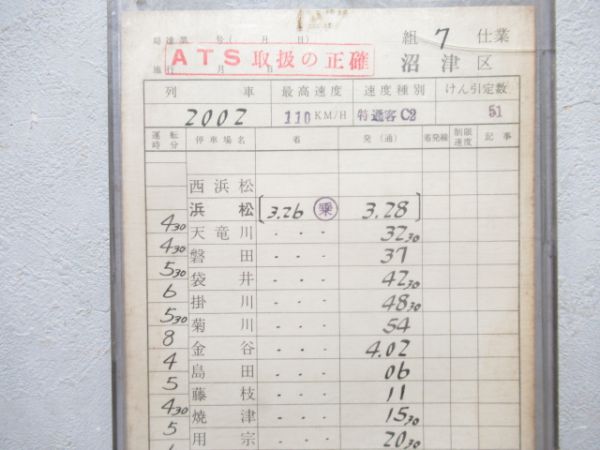 局達第 号( 月 日)
施行 月 日
ATS取扱の正確
組 7 仕業
沼津区
列 車 最高速度 速度種別 けん引定数
2002 110 KM/H 特通客C2 51
運転時分 停車場名 着 発(通) 着発線 制限速度 記事
西浜松
浜松 3.26 乗 3.28
4 30
天竜川 ・・・ 32 30
4 30
磐田 ・・・ 37
5 30
袋井 ・・・ 42 30
6
掛川 ・・・ 48 30
5 30
菊川 ・・・ 54
8
金谷 ・・・ 4.02
4
島田 ・・・ 06
5
藤枝 ・・・ 11
4 30
焼津 ・・・ 15 30
5
用宗 ・・・ 20 30